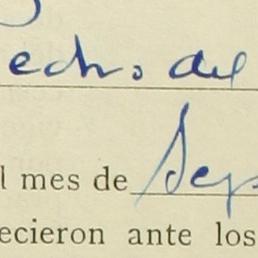 edro del
l mes de Sep
ecieron ante los